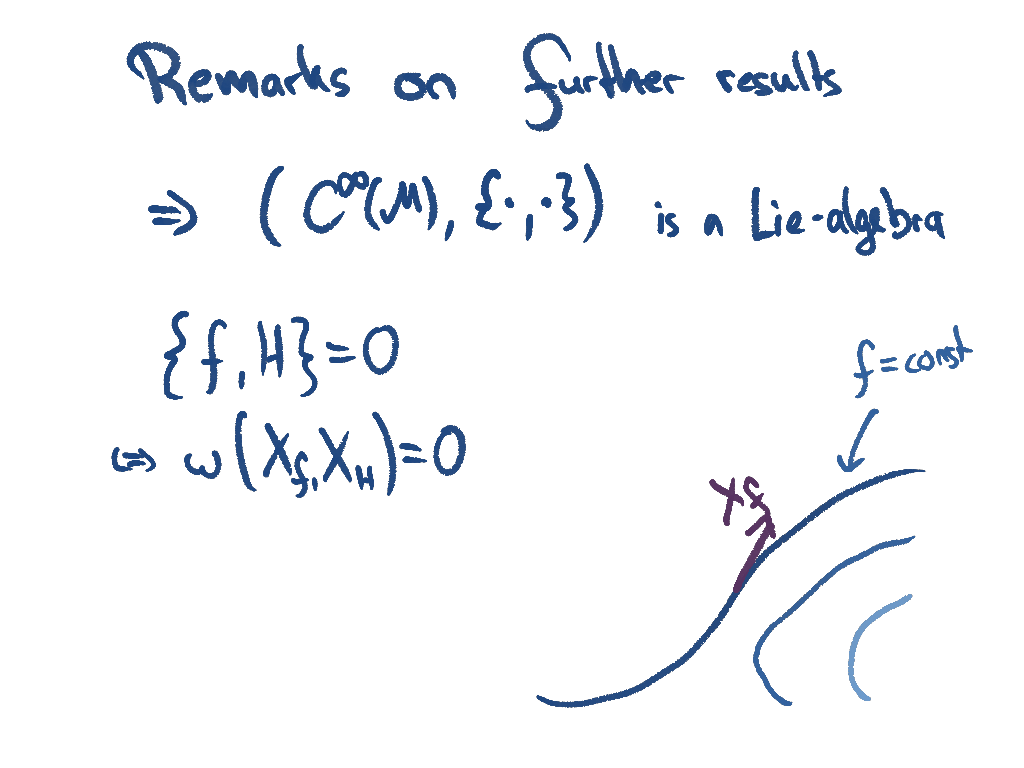 Remarks on further results
⇒ ( C^∞(M), {·,·} ) is a Lie-algebra
{f, H} = 0
f = const
⇔ ω(X_f, X_H) = 0
X_f